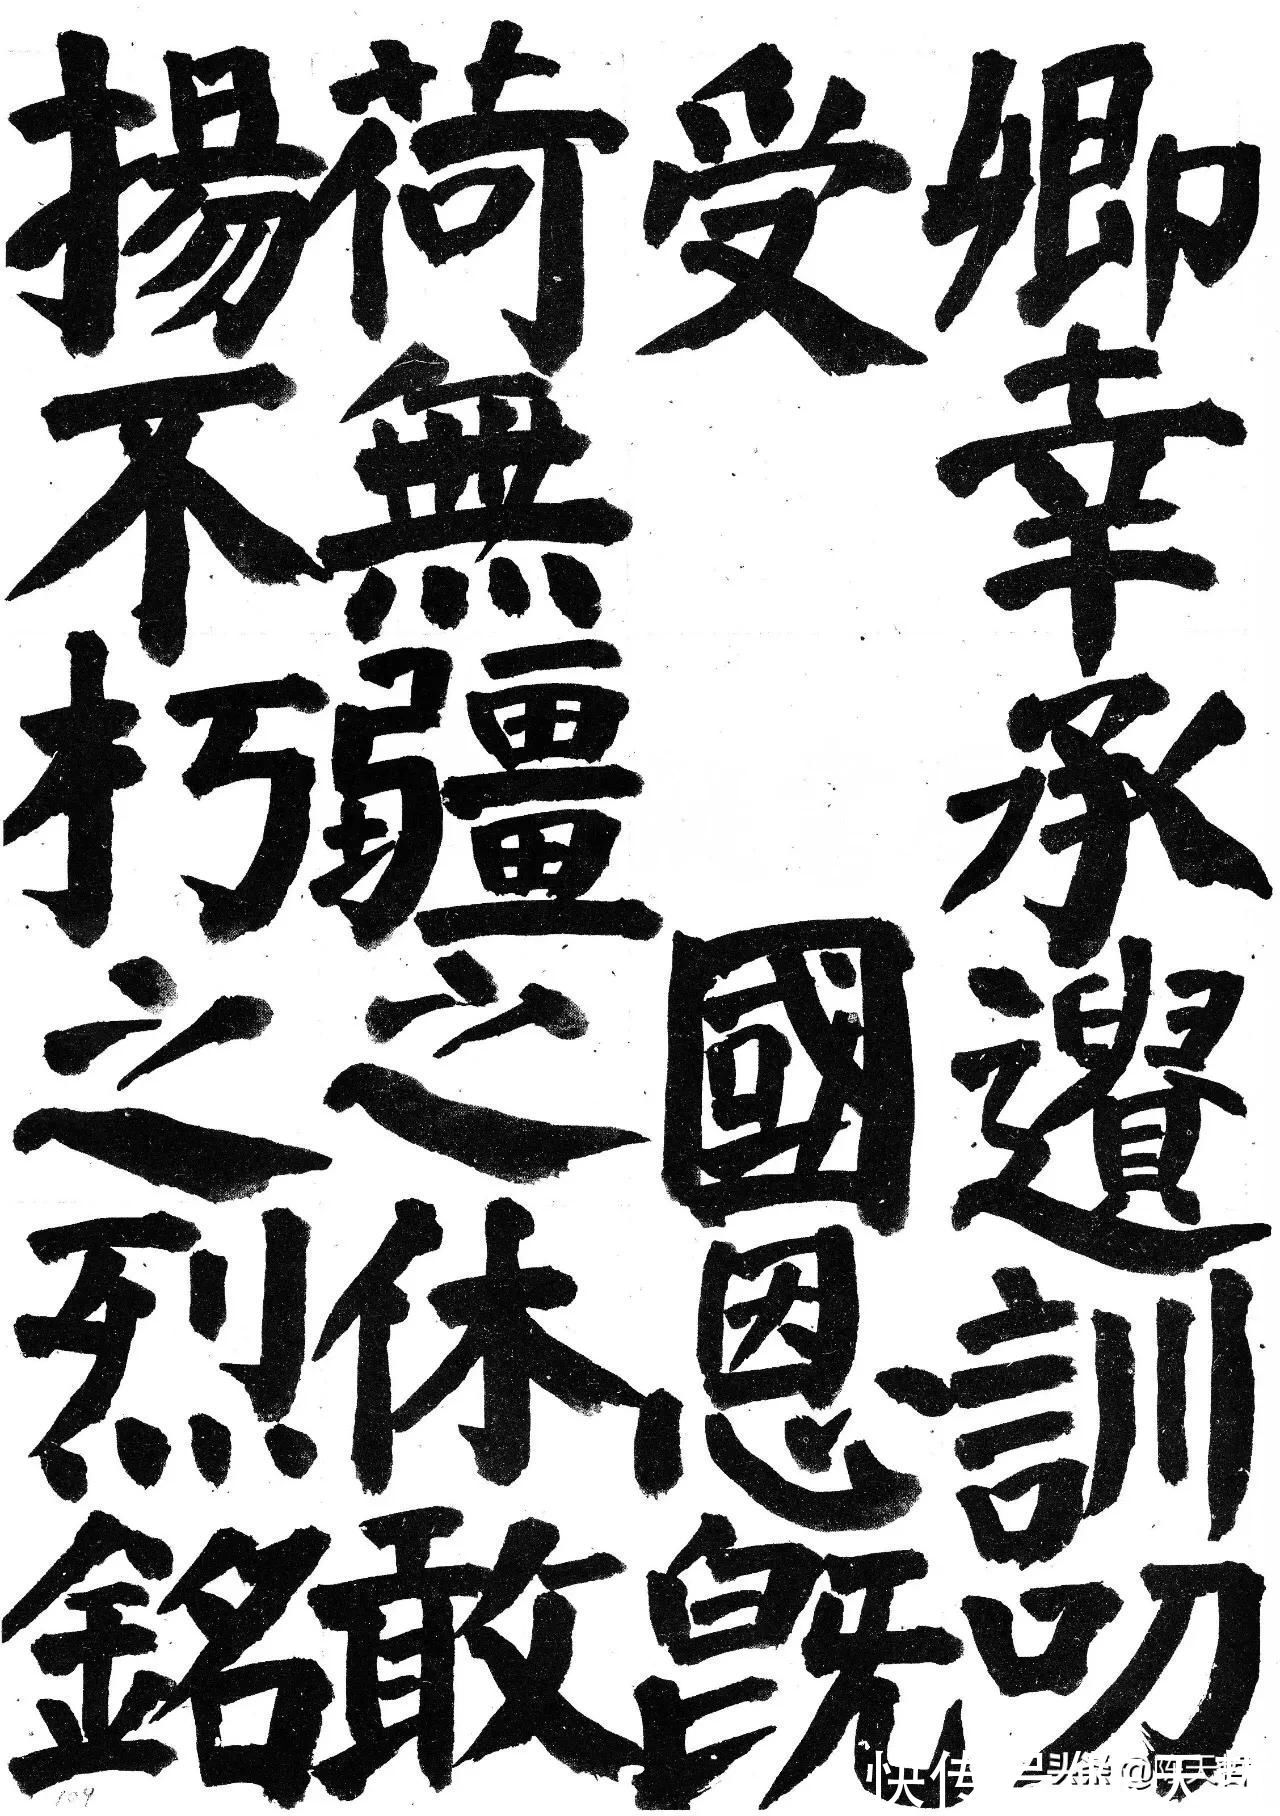 卿幸承遺訓叨
受 國恩既
荷無疆之休敢
揚不朽之烈銘
快传 头条@陈天
109